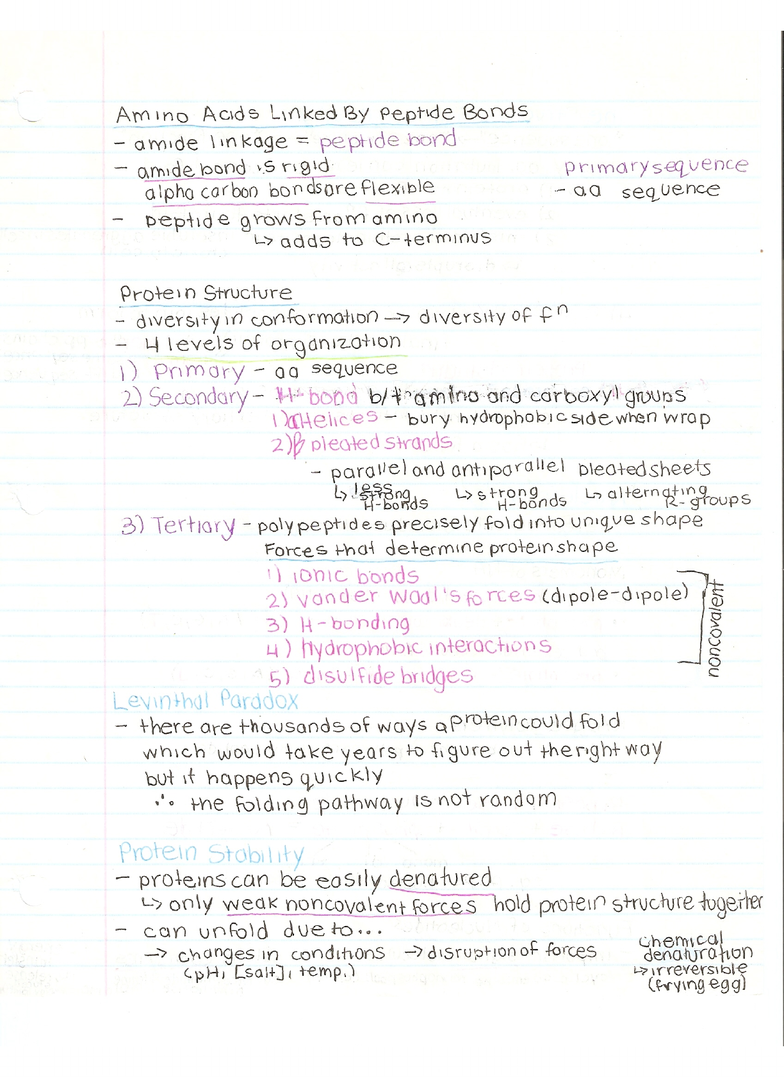 Amino Acids Linked By Peptide Bonds
- amide linkage = peptide bond
- amide bond is rigid
alpha carbon bonds are flexible
primary sequence
- aa sequence
- peptide grows from amino
↳ adds to C-terminus
Protein Structure
- diversity in conformation → diversity of fⁿ
- 4 levels of organization
1) Primary - aa sequence
2) Secondary - H-bond b/t amino and carboxyl groups
1) α Helices - bury hydrophobic side when wrap
2) β pleated strands
- parallel and antiparallel pleated sheets
↳ less strong H-bonds ↳ strong H-bonds ↳ alternating R-groups
3) Tertiary - polypeptides precisely fold into unique shape
Forces that determine protein shape
1) ionic bonds
2) vander waal's forces (dipole-dipole)
3) H-bonding
4) hydrophobic interactions
5) disulfide bridges
noncovalent
Levinthal Paradox
- there are thousands of ways a protein could fold
which would take years to figure out the right way
but it happens quickly
∴ the folding pathway is not random
Protein Stability
- proteins can be easily denatured
↳ only weak noncovalent forces hold protein structure together
- can unfold due to...
→ changes in conditions → disruption of forces
(pH, [salt], temp.)
Chemical
denaturation
↳ irreversible
(frying egg)